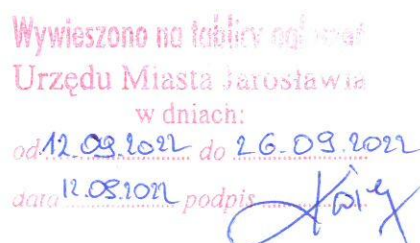 Wywieszono na tablicy ogłoszeń
Urzędu Miasta Jarosławia
w dniach:
od 12.09.2022 do 26.09.2022
data 12.09.2022 podpis